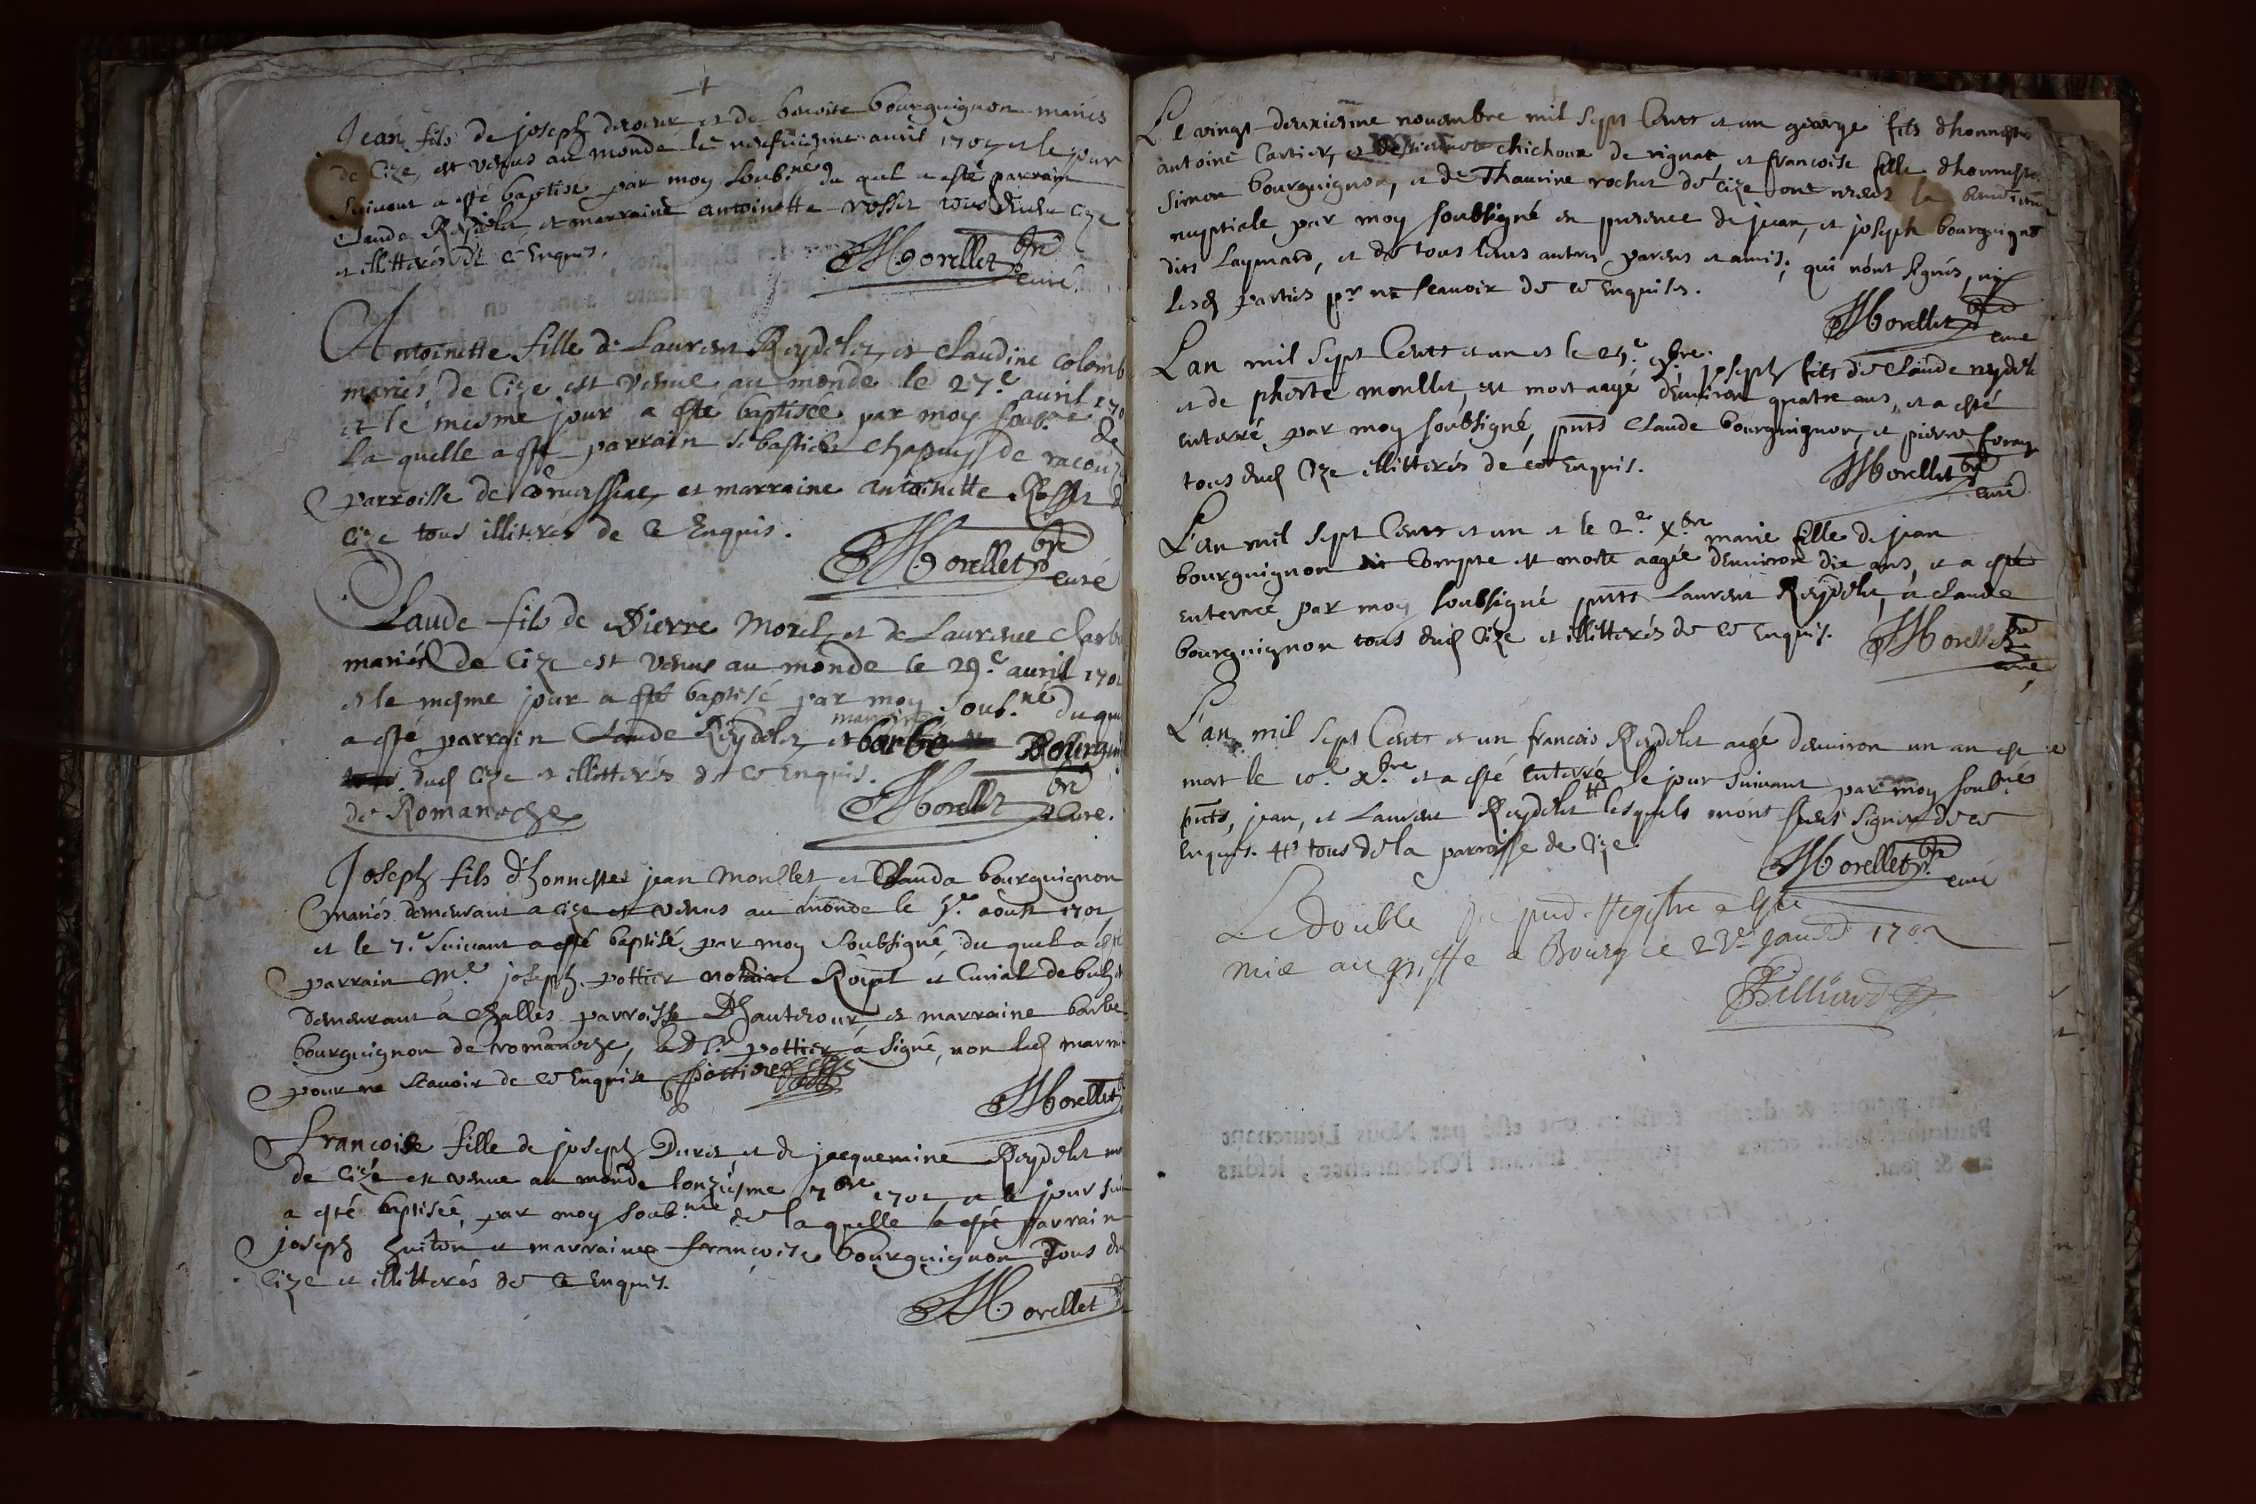 Jean fils de joseph et de benoite bourguignon mariés
de Cize, est venus au monde le avril 1701 et le jour
suivant a esté baptisé par moy soub.né du quel a esté parrain
Claude Reydelet et marraine antoinette rosset tous dudit Cize
et illitterés de ce Enquis.
Morellet pbre
curé
Antoinette fille de Laurent Reydelet, et Claudine Colomb
mariés de Cize est venue au monde le 27.e avril 170
et le mesme jour a esté baptisée par moy soub.né de
la quelle a esté parrain Sebastien Chapuys de racouz
parroisse de et marraine Antoinette Rosset d
Cize tous illiterés de ce Enquis.
Morellet pbre
curé
Claude fils de Pierre Morel, et de Laurence Charb
mariés de Cize est venus au monde le 29.e avril 1701
et le mesme jour a esté baptisé par moy soub.né du que
a esté parrain Claude Reydelet et marraine barbe Bourgui
dud Cize et illitterés de ce Enquis.
de Romanesche
Morellet pbre
Curé.
Joseph fils d'honnestes jean Moullet, et Clauda bourguignon
mariés demeurant a Cize est venus au monde le 5.e aoust 1701
et le 7.e suivant a esté baptisé par moy soubsigné, du quel a esté
parrain M.e joseph pottier notaire Royal et Curial de
demeurant à Challes parroisse et marraine barbe
bourguignon de romanesche, led S.r pottier a signé, non lad marr
pour ne scavoir de ce Enquise pottier
Morellet
Francoise fille de joseph Duret et de jacquemine Reydelet m
de Cize est venue au monde l'onziesme 7bre 1701 et le jour sui
a esté baptisée, par moy soub.né de la quelle a esté parrain
joseph et marraine françoise bourguignon tous du
Cize et illitterés de ce Enquis.
Morellet
Le vingt-deuxiesme novembre mil sept Cents et un george fils d'honneste
antoine Cartier, et chichoux de rignat, et francoise fille d'honneste
Simon bourguignon, et de Thaurine rochet de Cize ont receu la
nuptiale par moy soubsigné en presence de jean, et joseph bourguignon
dits Laymard, et de tous leurs autres parens et amis, qui n'ont signés, ny
lesd parties pr ne scavoir de ce Enquises.
Morellet pbre
curé
L'an mil Sept Cents et un et le 9bre joseph fils de Claude reydelet
et de moullet, est mort aagé d'environ quatre ans, et a esté
enterré, par moy soubsigné, pnts Claude bourguignon, et pierre
tous dud Cize illitterés de ce Enquis.
Morellet pbre
curé
L'an mil sept Cents et un et le 2.e Xbre marie fille de jean
bourguignon dit Compte est morte aagée d'environ dix ans, et a esté
enterrée par moy soubsigné pnts Laurent Reydelet, et Claude
bourguignon tous dud Cize et illitterés de ce Enquis.
Morellet pbre
curé
L'an mil sept Cents et un francois Reydelet aagé d'environ un an est
mort le 10.e Xbre et a esté Enterré le jour suivant par moy soub.né
pnts, jean, et Laurent Reydelet # lesquels n'ont sceu signer de ce
Enquis. # tous de la parroisse de Cize.
Morellet pbre
curé
Le double du pnd Registre a esté
mis au greffe a Bourg ce 23e janvier 1702